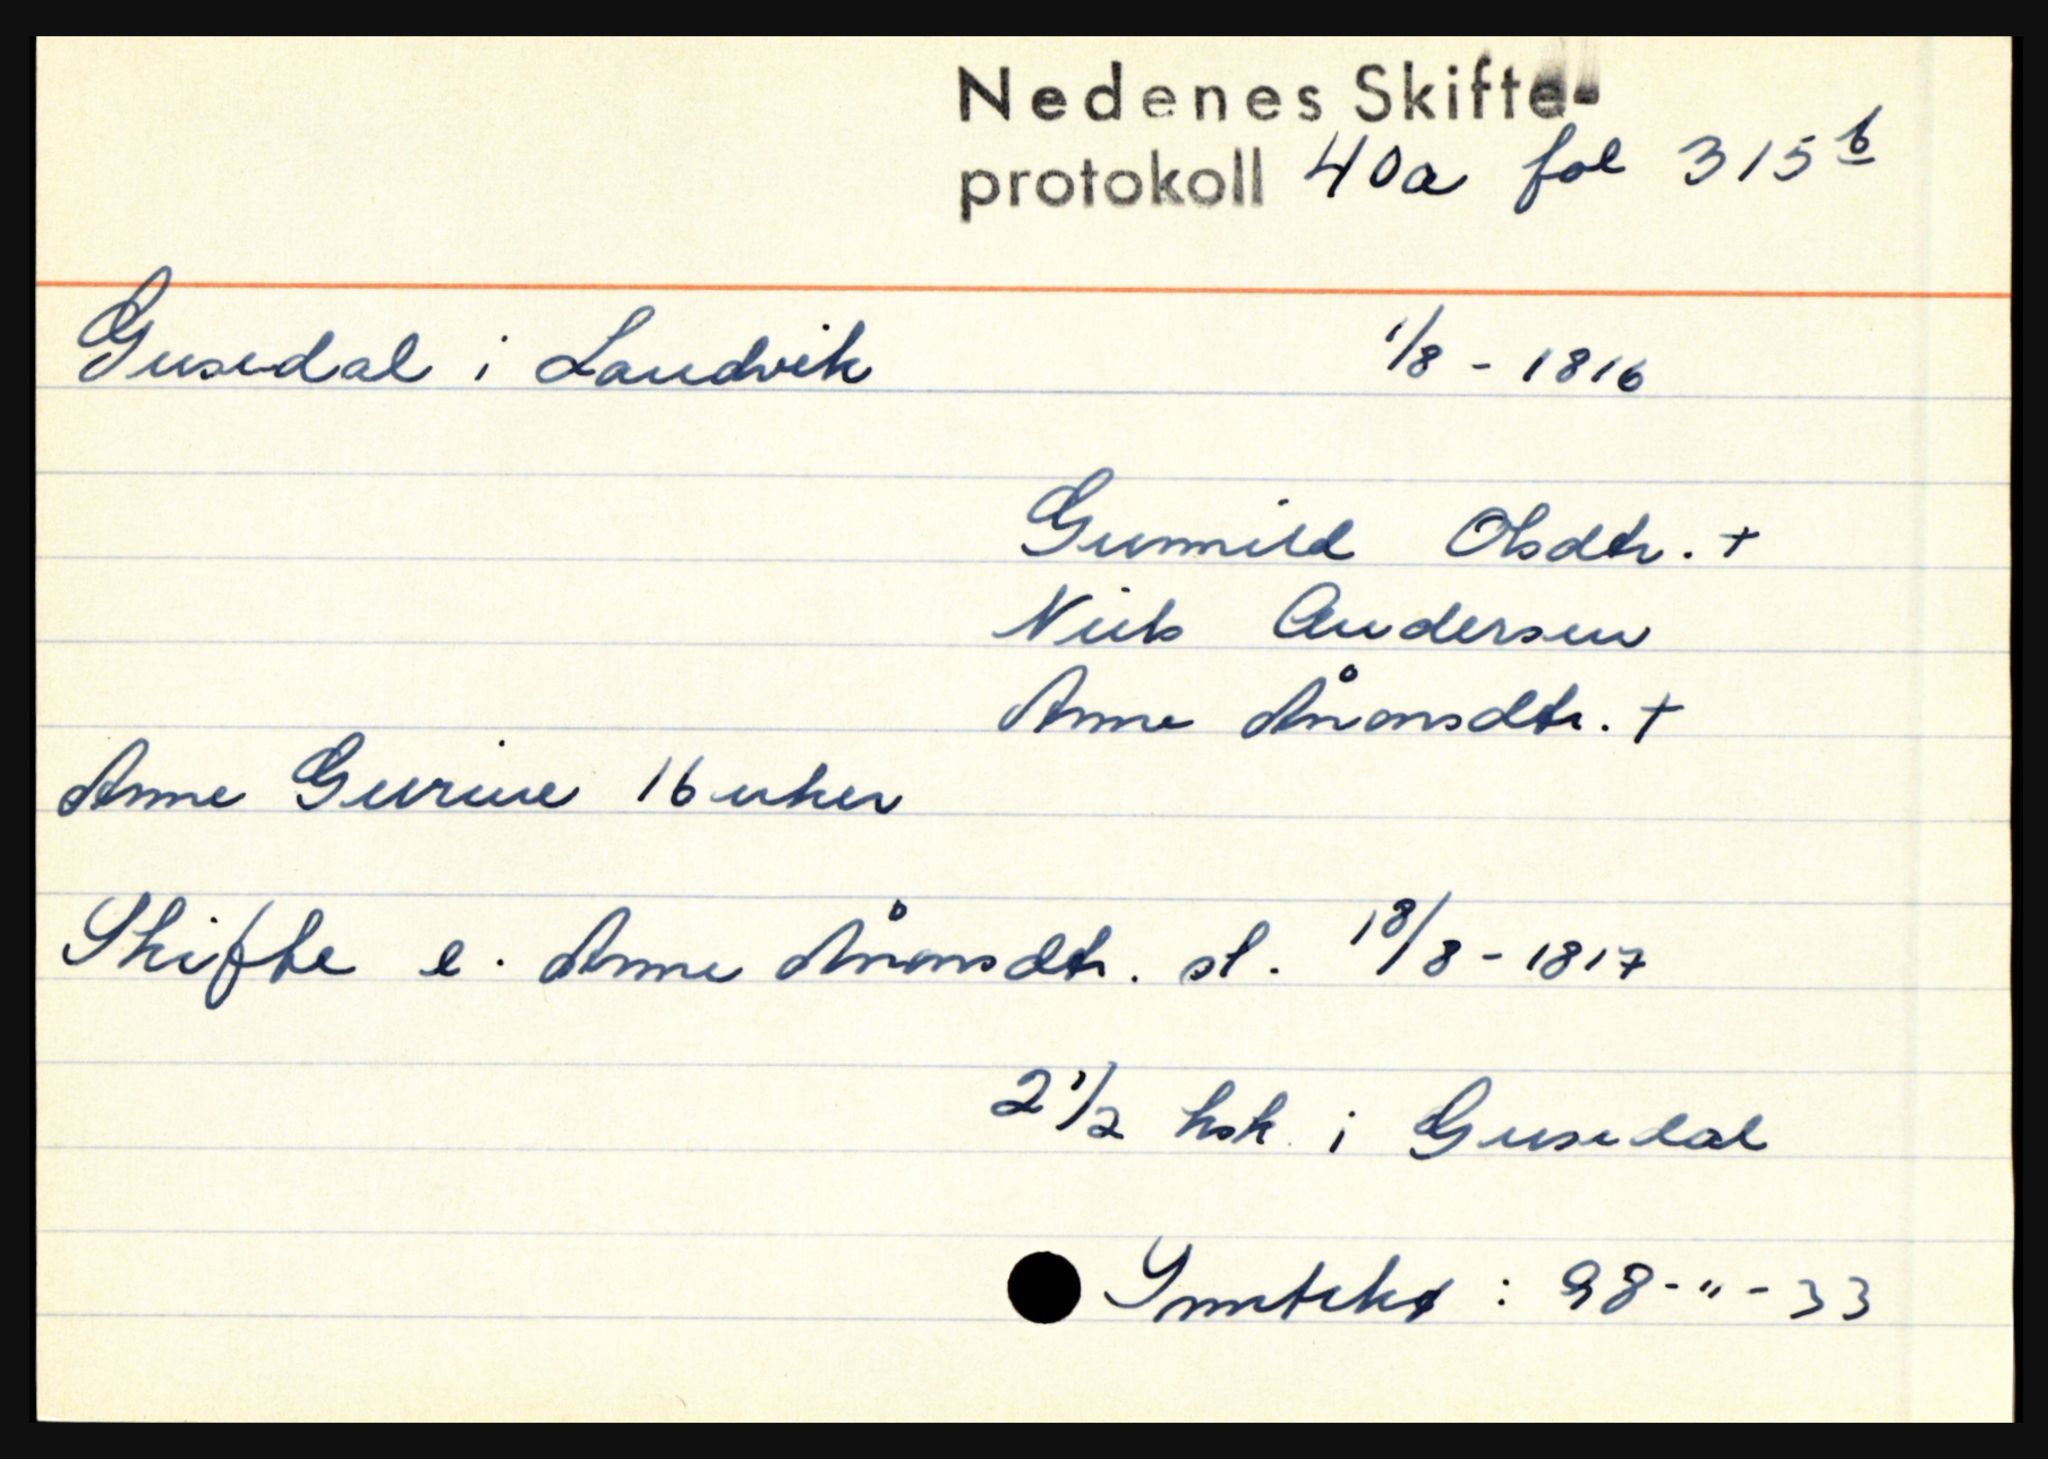 Nedenes Skifte-
protokoll 40a fol 315 b
Gusedal i Landvik 1/8 - 1816
Gunnild Olsdtr. +
Niels Andersen
Anne Ånonsdtr. +
Anne Gurine 16 uker
Skifte e. Anne Ånonsdtr. sl. 18/8 - 1817
2 1/2 ksk. i Gusedal
: 98 - " - 33